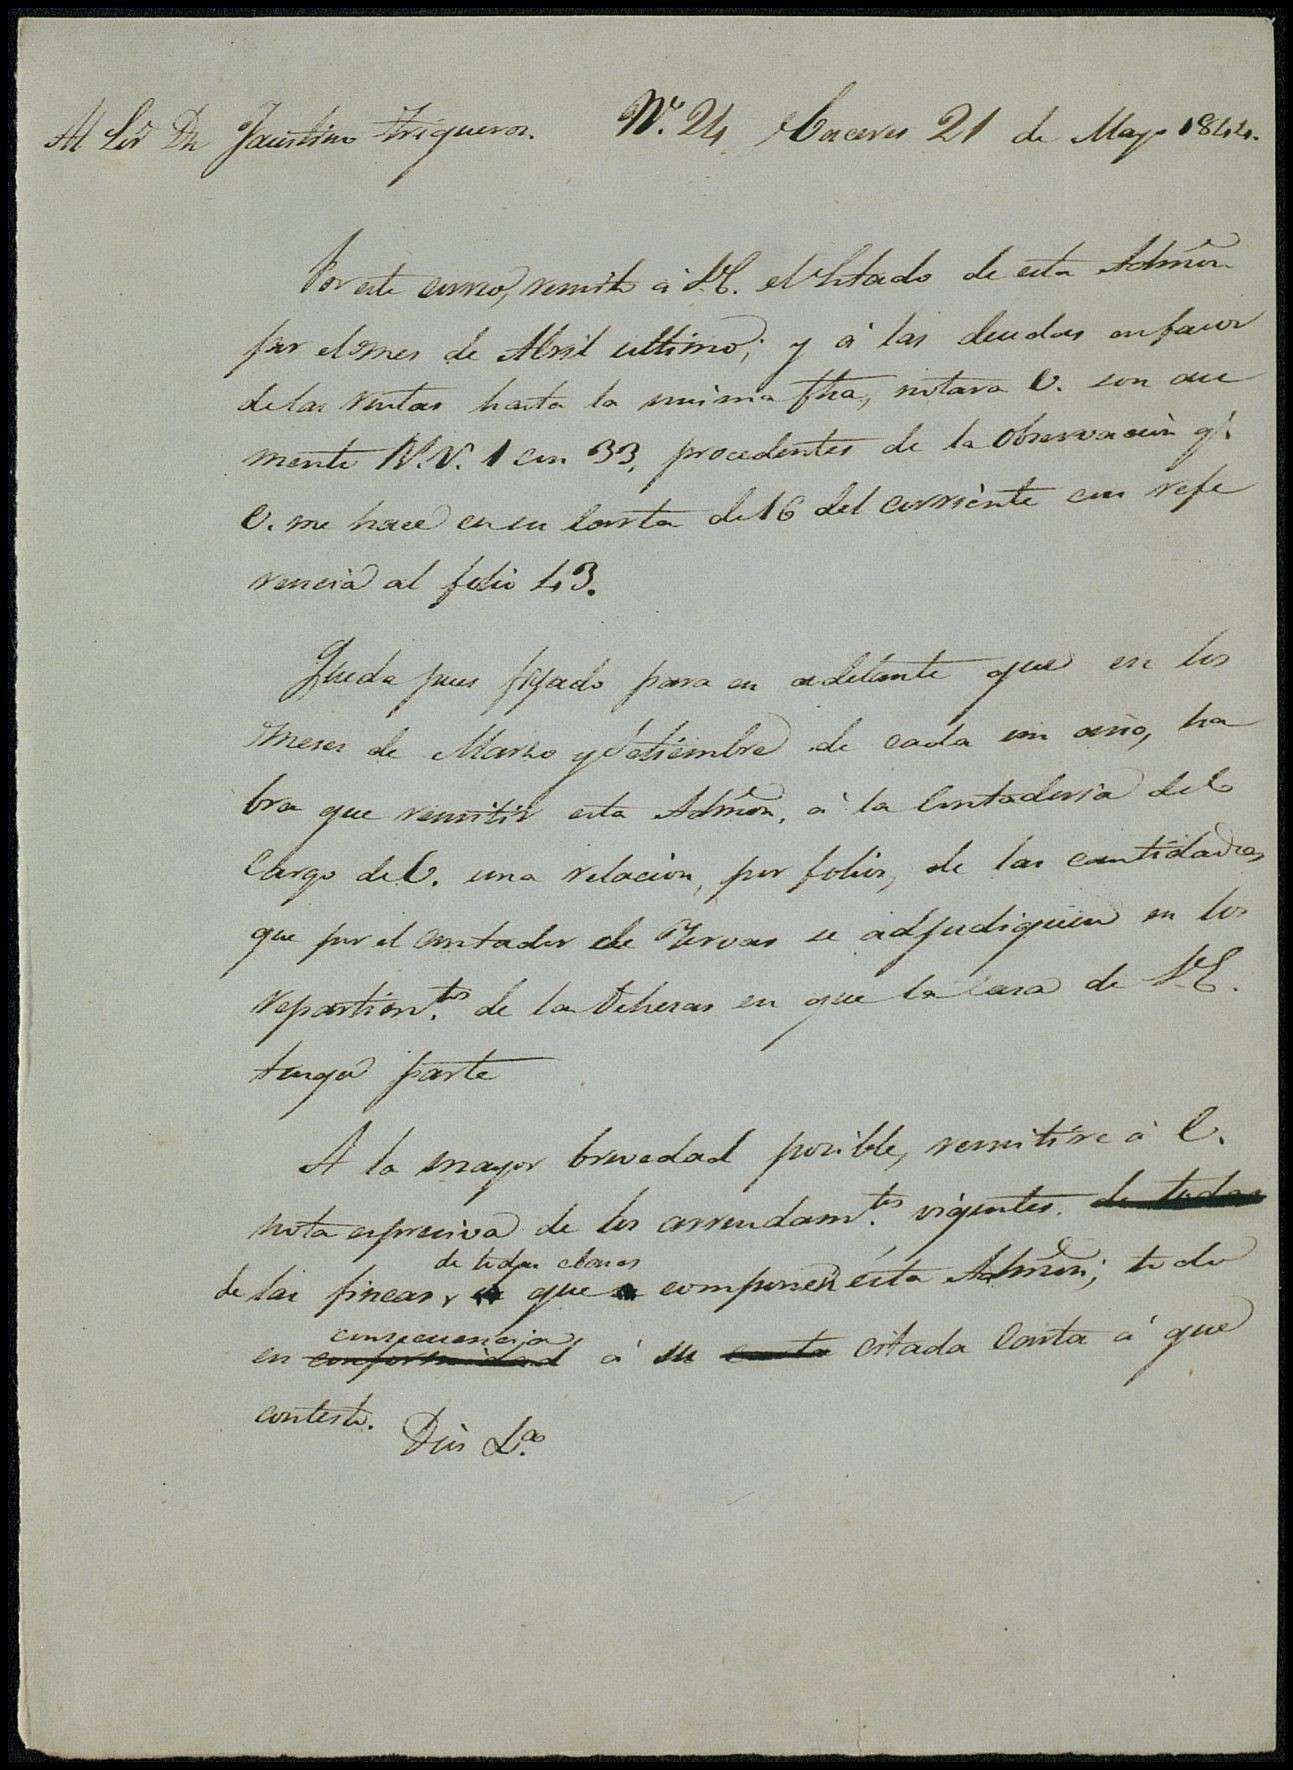 Al Sor Dn Faustino Trigueros. Nº. 24 Caceres 21 de Mayo 1844.
Por este correo, remito á S.E. el Estado de esta Admon
por el mes de Abril ultimo; y á las deudas en favor
de las rentas hasta la misma fha, notara V. son au
mento N.N. 1 con 33, procedentes de la Observacion q.
V. me hace en su Carta de 16 del corriente con refe
rencia al folio 43.
Queda pues fijado para en adelante que en los
meses de Marzo y Setiembre de cada un año, ha
bra que remitir esta Admon, á la Contaduria del
Cargo de V. una relacion, por folios, de las cantidades
que por el contador de Yervas se adjudiquen en los
repartim.tos de las Dehesas en que la Casa de S.E.
tenga parte
A la mayor brevedad posible, remitire á V.
nota espresiva de los arrendam.tos vigentes. de todas
de todas clases
de las fincas, que componen esta Admon; todo
consecuencia
en conformidad á su carta citada Carta á que
contesto. Dios L.a